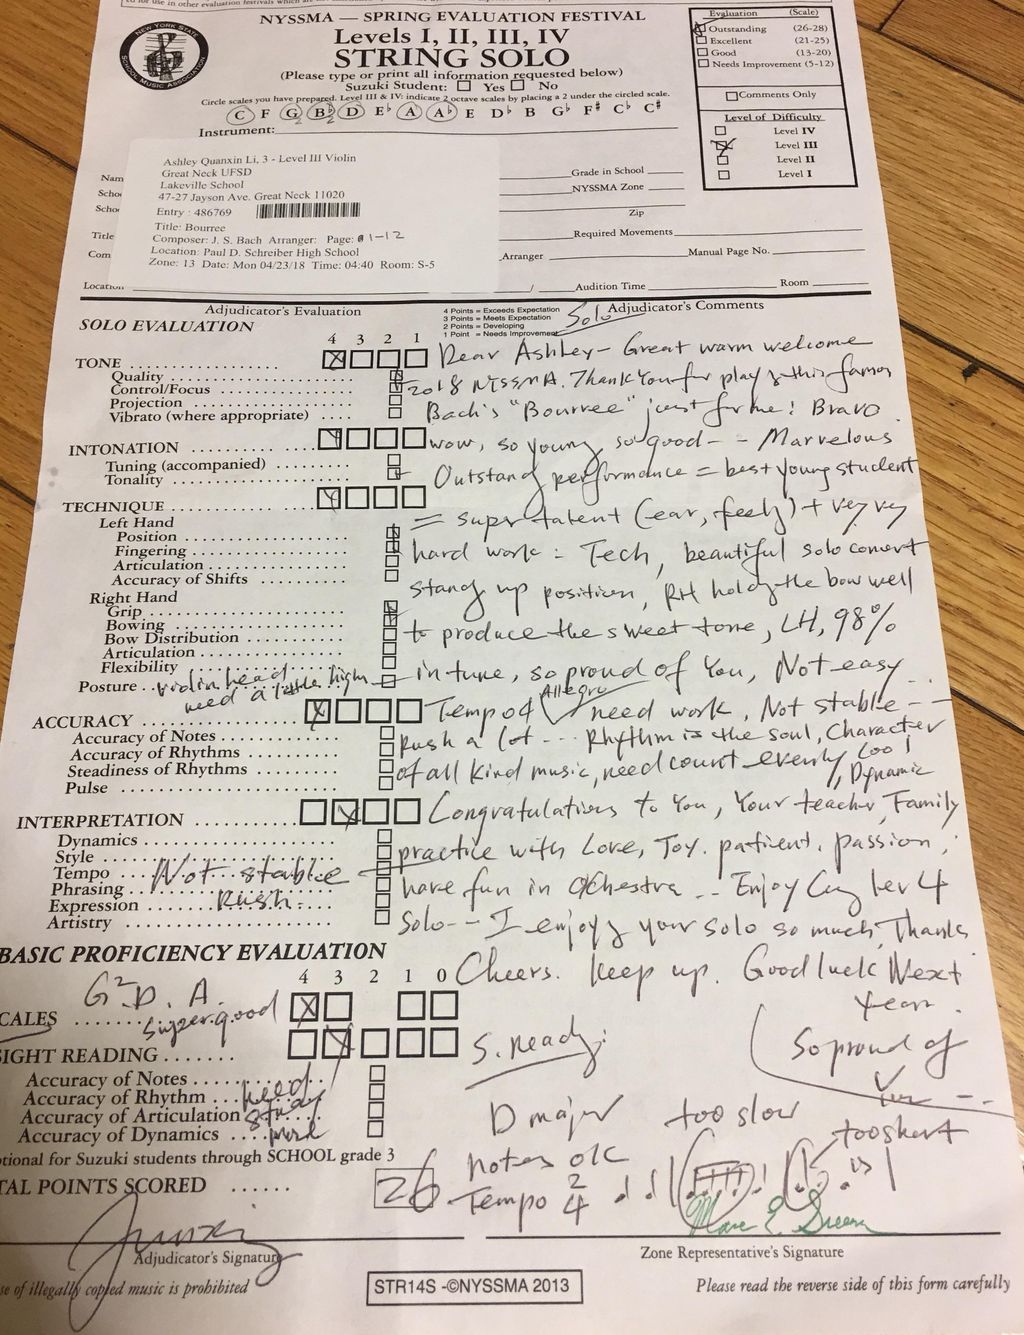 NYSSMA — SPRING EVALUATION FESTIVAL
Levels I, II, III, IV
STRING SOLO
(Please type or print all information requested below)
Suzuki Student: Yes No
Circle scales you have prepared. Level III & IV: indicate 2 octave scales by placing a 2 under the circled scale.
C F G B♭ D E♭ A A♭ E D♭ B G♭ F♯ C♭ C♯
2 2
NEW YORK STATE SCHOOL MUSIC ASSOCIATION
Evaluation (Scale)
Outstanding (26-28)
Excellent (21-25)
Good (13-20)
Needs Improvement (5-12)
Comments Only
Level of Difficulty
Level IV
Level III
Level II
Level I
Instrument:
Ashley Quanxin Li, 3 - Level III Violin
Great Neck UFSD
Lakeville School
47-27 Jayson Ave. Great Neck 11020
Entry : 486769
Title: Bourree
Composer: J. S. Bach Arranger: Page: 11-12
Location: Paul D. Schreiber High School
Zone: 13 Date: Mon 04/23/18 Time: 04:40 Room: S-5
Nam
Scho
Scho
Title
Com
Grade in School
NYSSMA Zone
Zip
Required Movements
Arranger Manual Page No.
Location / Audition Time Room
Adjudicator's Evaluation
4 Points = Exceeds Expectation
3 Points = Meets Expectation
2 Points = Developing
1 Point = Needs Improvement
Solo
Adjudicator's Comments
SOLO EVALUATION
4 3 2 1
TONE
Quality
Control/Focus
Projection
Vibrato (where appropriate)
INTONATION
Tuning (accompanied)
Tonality
TECHNIQUE
Left Hand
Position
Fingering
Articulation
Accuracy of Shifts
Right Hand
Grip
Bowing
Bow Distribution
Articulation
Flexibility
Posture violin head
need a little high
ACCURACY
Accuracy of Notes
Accuracy of Rhythms
Steadiness of Rhythms
Pulse
INTERPRETATION
Dynamics
Style
Tempo Not stable
Phrasing
Expression Rush
Artistry
Dear Ashley- Great warm welcome
2018 NYSSMA. Thank You for play this famos
Bach's "Bourree" just for me! Bravo
wow, so young, so good - - Marvelous
Outstand performance = best young student
= super talent (ear, feely) + very very
hard work = Tech, beautiful solo concert
standg up position, RH holdg the bow well
to produce the sweet tone, LH, 98%
in tune, so proud of You, Not easy
Allegro
Tempo 4 need work, Not stable - -
Rush a lot -- Rhythm is the soul, Character
of all kind music, need count evenly too!
Dynamic
Congratulations to You, Your teacher, Family
practice with Love, Joy. patient. passion,
have fun in Orchestra - - Enjoy lev 4
Solo -- I enjoy your solo so much, Thanks
Cheers. Keep up. Good luck Next
Year.
So proud of
BASIC PROFICIENCY EVALUATION
4 3 2 1 0
G² D. A.
CALES super good
IGHT READING
Accuracy of Notes
Accuracy of Rhythm need
Accuracy of Articulation study
Accuracy of Dynamics
S. ready:
D major too slow
notes ok too short
Tempo 2 4
tional for Suzuki students through SCHOOL grade 3
TAL POINTS SCORED 26
Adjudicator's Signature
Zone Representative's Signature
se of illegally copied music is prohibited
STR14S -©NYSSMA 2013
Please read the reverse side of this form carefully